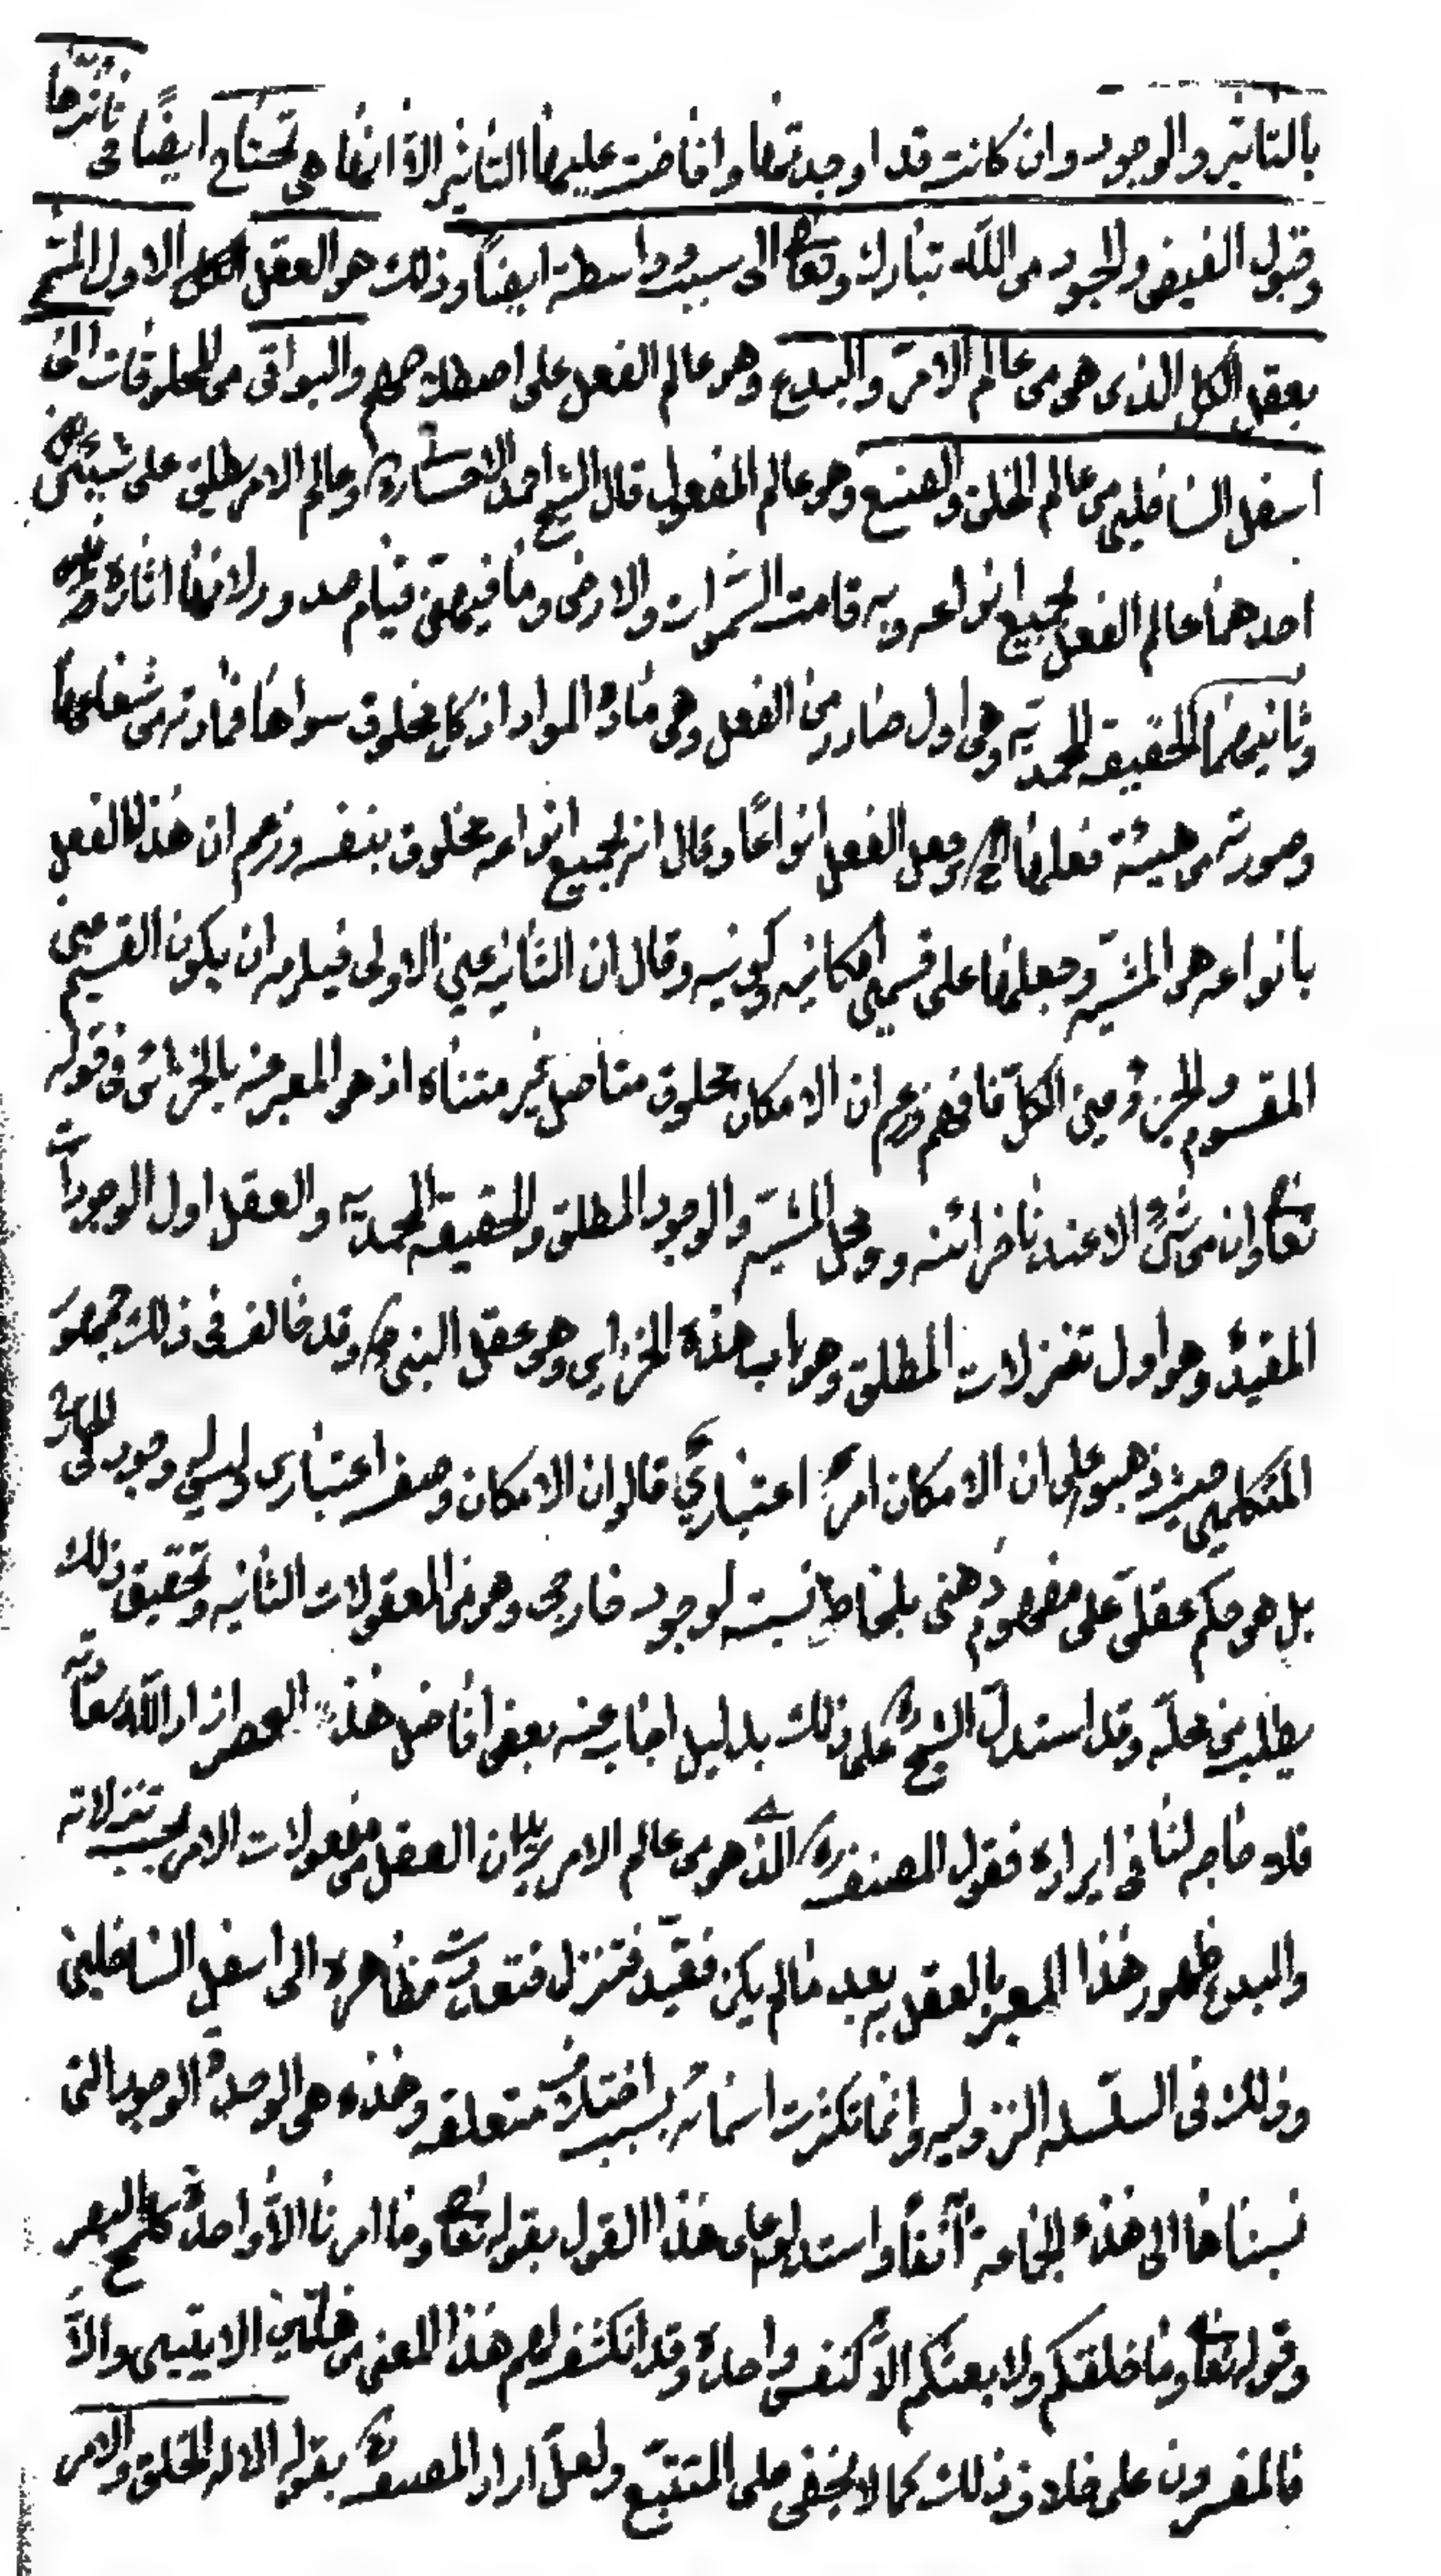 بالتاثير والوجود وان كانت قد اوجدتها وافاضت عليها التاثير الا انها هي تحتاج ايضًا في تاثرها
وقبول الفيض والجود من الله تبارك وتعا الى سبب وواسطه ايضًا وذلك هو العقل الكل الاول المتم
بعقل الكل الذى هو من عالم الامر والبدع وهو عالم الفعل على اصطلاحهم والبواقى من المخلوقات الى
اسفل السافلين من عالم الخلق والصنع وهو عالم المفعول قال الشيخ احمد الاحسائى ره وعالم الامر يطلق على شيئين
احدهما عالم الفعل بجميع انواعه وبه قامت السموات والارض وما فيهن قيام صدور لانها اثاره
وثانيهما الحقيقه المحمديه وهى اول صادر من الفعل وهى مادة المواد اذ كل مخلوق سواها فمادته من شعاعها
وصورته من هيئة فعلها الخ وجعل الفعل انواعًا وقال انه بجميع انواعه مخلوق بنفسه وزعم ان هذا الفعل
بانواعه هو المشيه وجعلها على قسمين امكانيه وكونيه وقال ان الثانيه عين الاولى فيلزمه ان يكون القسيم عين
المقسوم والجزؤ عين الكل فافهم وزعم ان الامكان مخلوق متاصل غير متناه اذ هو المعبر عنه بالخزائن فى قوله
تعا وان من شئ الا عندنا خزائنه ومحل المشيه والوجود المطلق والحقيقه المحمديه والعقل اول الوجودات
المقيد وهو اول تنزلات المطلق وهو باب هذه الخزاين وهو عقل النبى ص وقد خالف فى ذلك جمهور
المتكلمين حيث ذهبوا على ان الامكان امر اعتبارىّ قالوا ان الامكان وصف اعتبارى ليس له وجود فى الخارج
بل هو حكم عقلى على مفهوم ذهنى بلحاظ نسبته لوجود خارجى وهو من المعقولات الثانيه وتحقيق ذلك
يطلب من محله وقد استدل الشيخ ره على ذلك بدليل اجاب عنه بعض افاضل هذا العصر زاد الله
فلا حاجه لنا فى ايراده فقول المصنف ره الذى هو من عالم الامر بيان ان العقل من مفعولات الامر بحسب تنزلاته
والبدع ظهور هذا المعبر بالعقل به بعد مالم يكن فقيد فتنزل فتعددت مظاهره الى اسفل السافلين
وذلك فى السلسله النزوليه وانما تكثرت اسمائه بسبب اختلاف متعلقه وهذه هى الوحدة الوجود التى
نسبناها الى هذه الجماعه آنفًا واستدلوا على هذا القول بقوله تعا وما امرنا الا واحدة كلمح بالبصر
وقوله تعا وما خلقكم ولا بعثكم الا كنفس واحدة وقد انكشف لهم هذا المعنى من هاتين الايتين والا
فالمفسرون على خلاف ذلك كما لا يخفى على المتتبع ولعل اراد المصنف ره بقوله الا له الخلق والامر